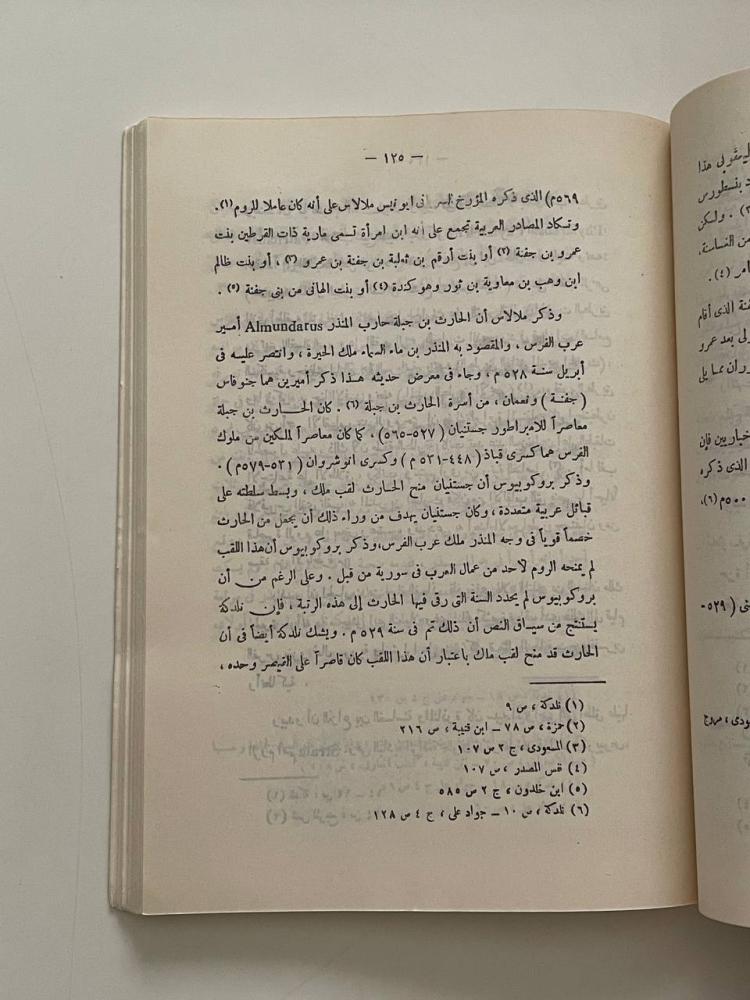 — ١٢٥ —
٥٦٩م) الذى ذكره المؤرخ السريانى ابو نيس ملالاس على أنه كان عاملا للروم (١) .
وتكاد المصادر العربية تجمع على أنه ابن امرأة تسمى مارية ذات القرطين بنت
عمرو بن جفنة (٢) أو بنت أرقم بن ثعلبة بن جفنة بن عمرو (٣) ، أو بنت ظالم
ابن وهب بن معاوية بن ثور وهو كندة (٤) أو بنت الهانى من بنى جفنة (٥) .
وذكر ملالاس أن الحارث بن جبلة حارب المنذر Almundarus أمير
عرب الفرس ، والمقصود به المنذر بن ماء السماء ملك الحيرة ، وانتصر عليه فى
أبريل سنة ٥٢٨ م ، وجاء فى معرض حديثه هذا ذكر أميرين هما جنوفاس
( جفنة ) ونعمان ، من أسرة الحارث بن جبلة (٦) . كان الحارث بن جبلة
معاصراً للامبراطور جستنيان (٥٢٧-٥٦٥) ، كما كان معاصراً لملكين من ملوك
الفرس هما كسرى قباذ (٤٤٨-٥٣١ م) وكسرى انوشروان (٥٣١-٥٧٩م) .
وذكر بروكوبيوس أن جستنيان منح الحارث لقب ملك ، وبسط سلطته على
قبائل عربية متعددة ، وكان جستنيان يهدف من وراء ذلك أن يجعل من الحارث
خصماً قوياً فى وجه المنذر ملك عرب الفرس ، وذكر بروكوبيوس أن هذا اللقب
لم يمنحه الروم لاحد من عمال العرب فى سورية من قبل . وعلى الرغم من أن
بروكوبيوس لم يحدد السنة التى رقى فيها الحارث إلى هذه الرتبة ، فإن نلدكة
يستنتج من سياق النص أن ذلك تم فى سنة ٥٢٩ م . ويشك نلدكة أيضاً فى أن
الحارث قد منح لقب ملك باعتبار أن هذا اللقب كان قاصراً على القيصر وحده ،
(١) نلدكة ، ص ٩
(٢) حمزة ، ص ٧٨ — ابن قتيبة ، ص ٢١٦
(٣) المسعودى ، ج ٢ ص ١٠٧
(٤) نفس المصدر ، ص ١٠٧
(٥) ابن خلدون ، ج ٢ ص ٥٨٥
(٦) نلدكة ، ص ١٠ — جواد على ، ج ٤ ص ١٢٨
هذا
بنسطورس
. ولكن
من الغساسنة
(٤) .
الذى أقام
بعد عمرو
خباريين فإن
الذى ذكره
٥٠٠م (٦)،
( ٥٢٩-